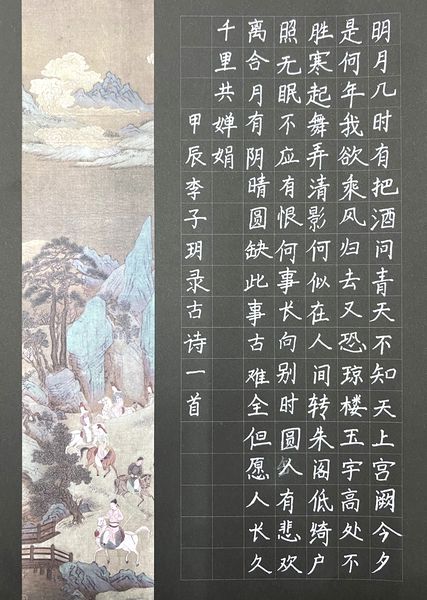 明月几时有把酒问青天不知天上宫阙今夕
是何年我欲乘风归去又恐琼楼玉宇高处不
胜寒起舞弄清影何似在人间转朱阁低绮户
照无眠不应有恨何事长向别时圆人有悲欢
离合月有阴晴圆缺此事古难全但愿人长久
千里共婵娟
甲辰李子玥录古诗一首